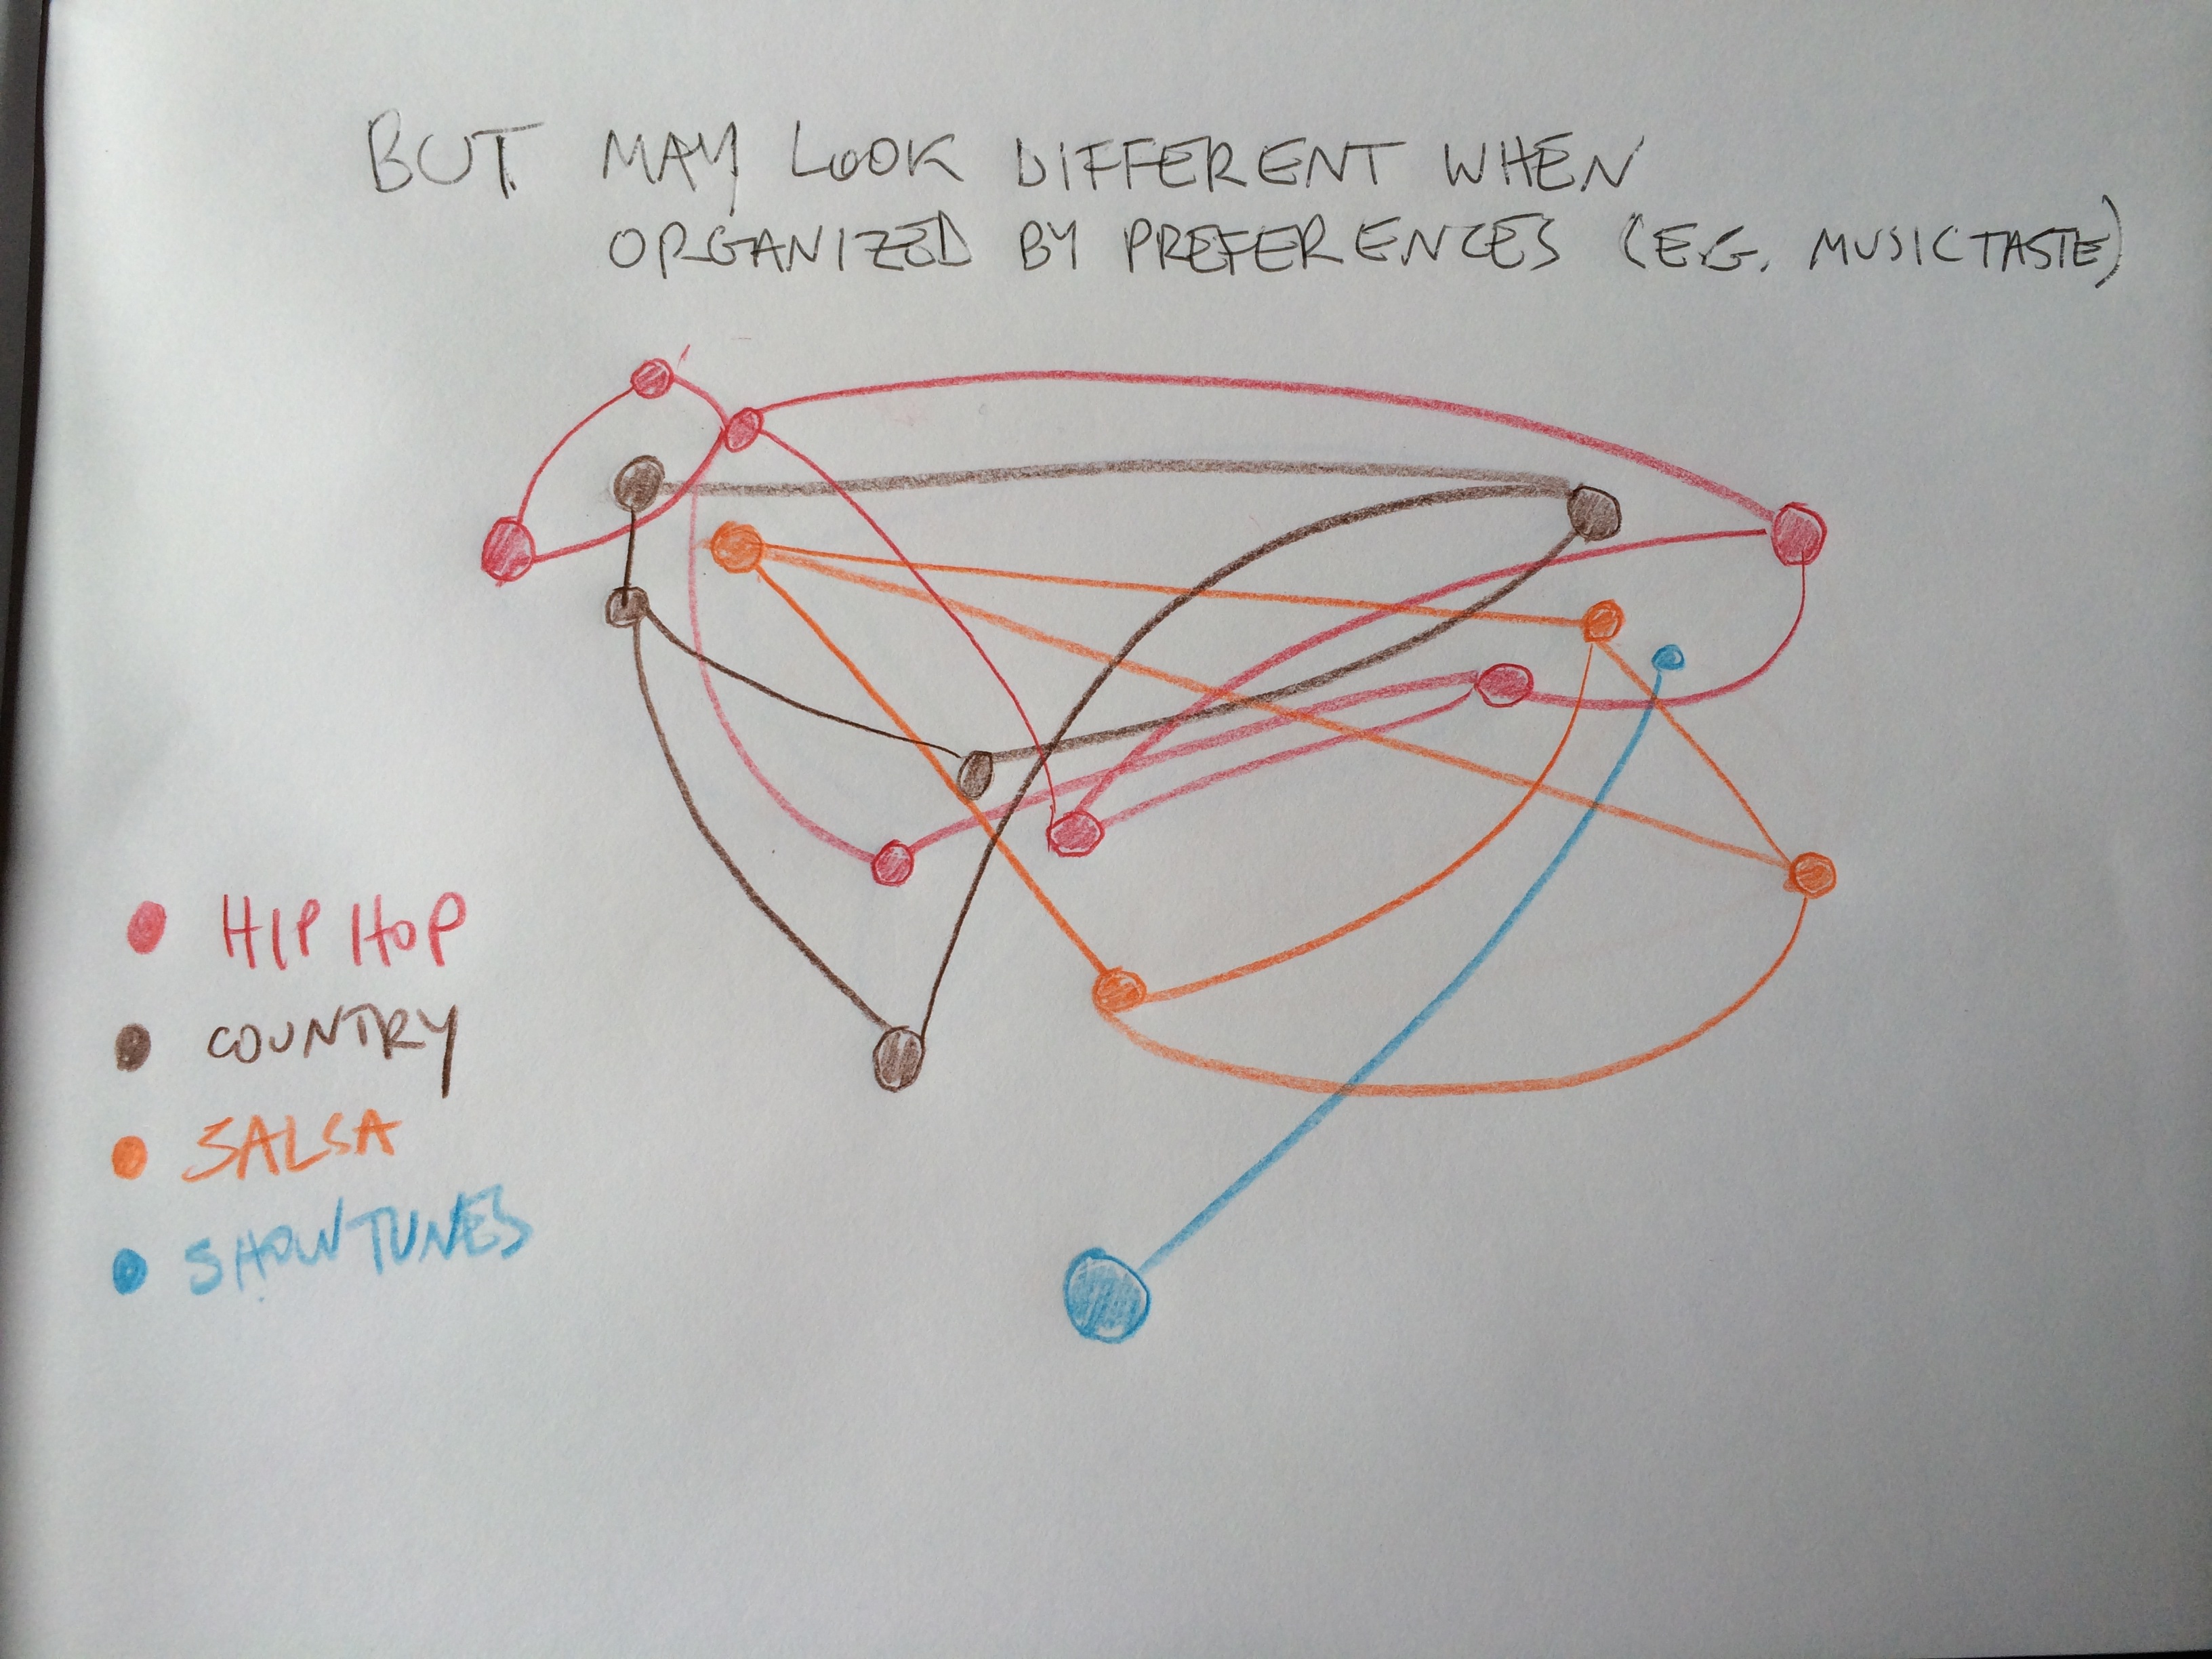 BUT MAY LOOK DIFFERENT WHEN
ORGANIZED BY PREFERENCES (E.G. MUSIC TASTE)
HIP HOP
COUNTRY
SALSA
SHOWTUNES